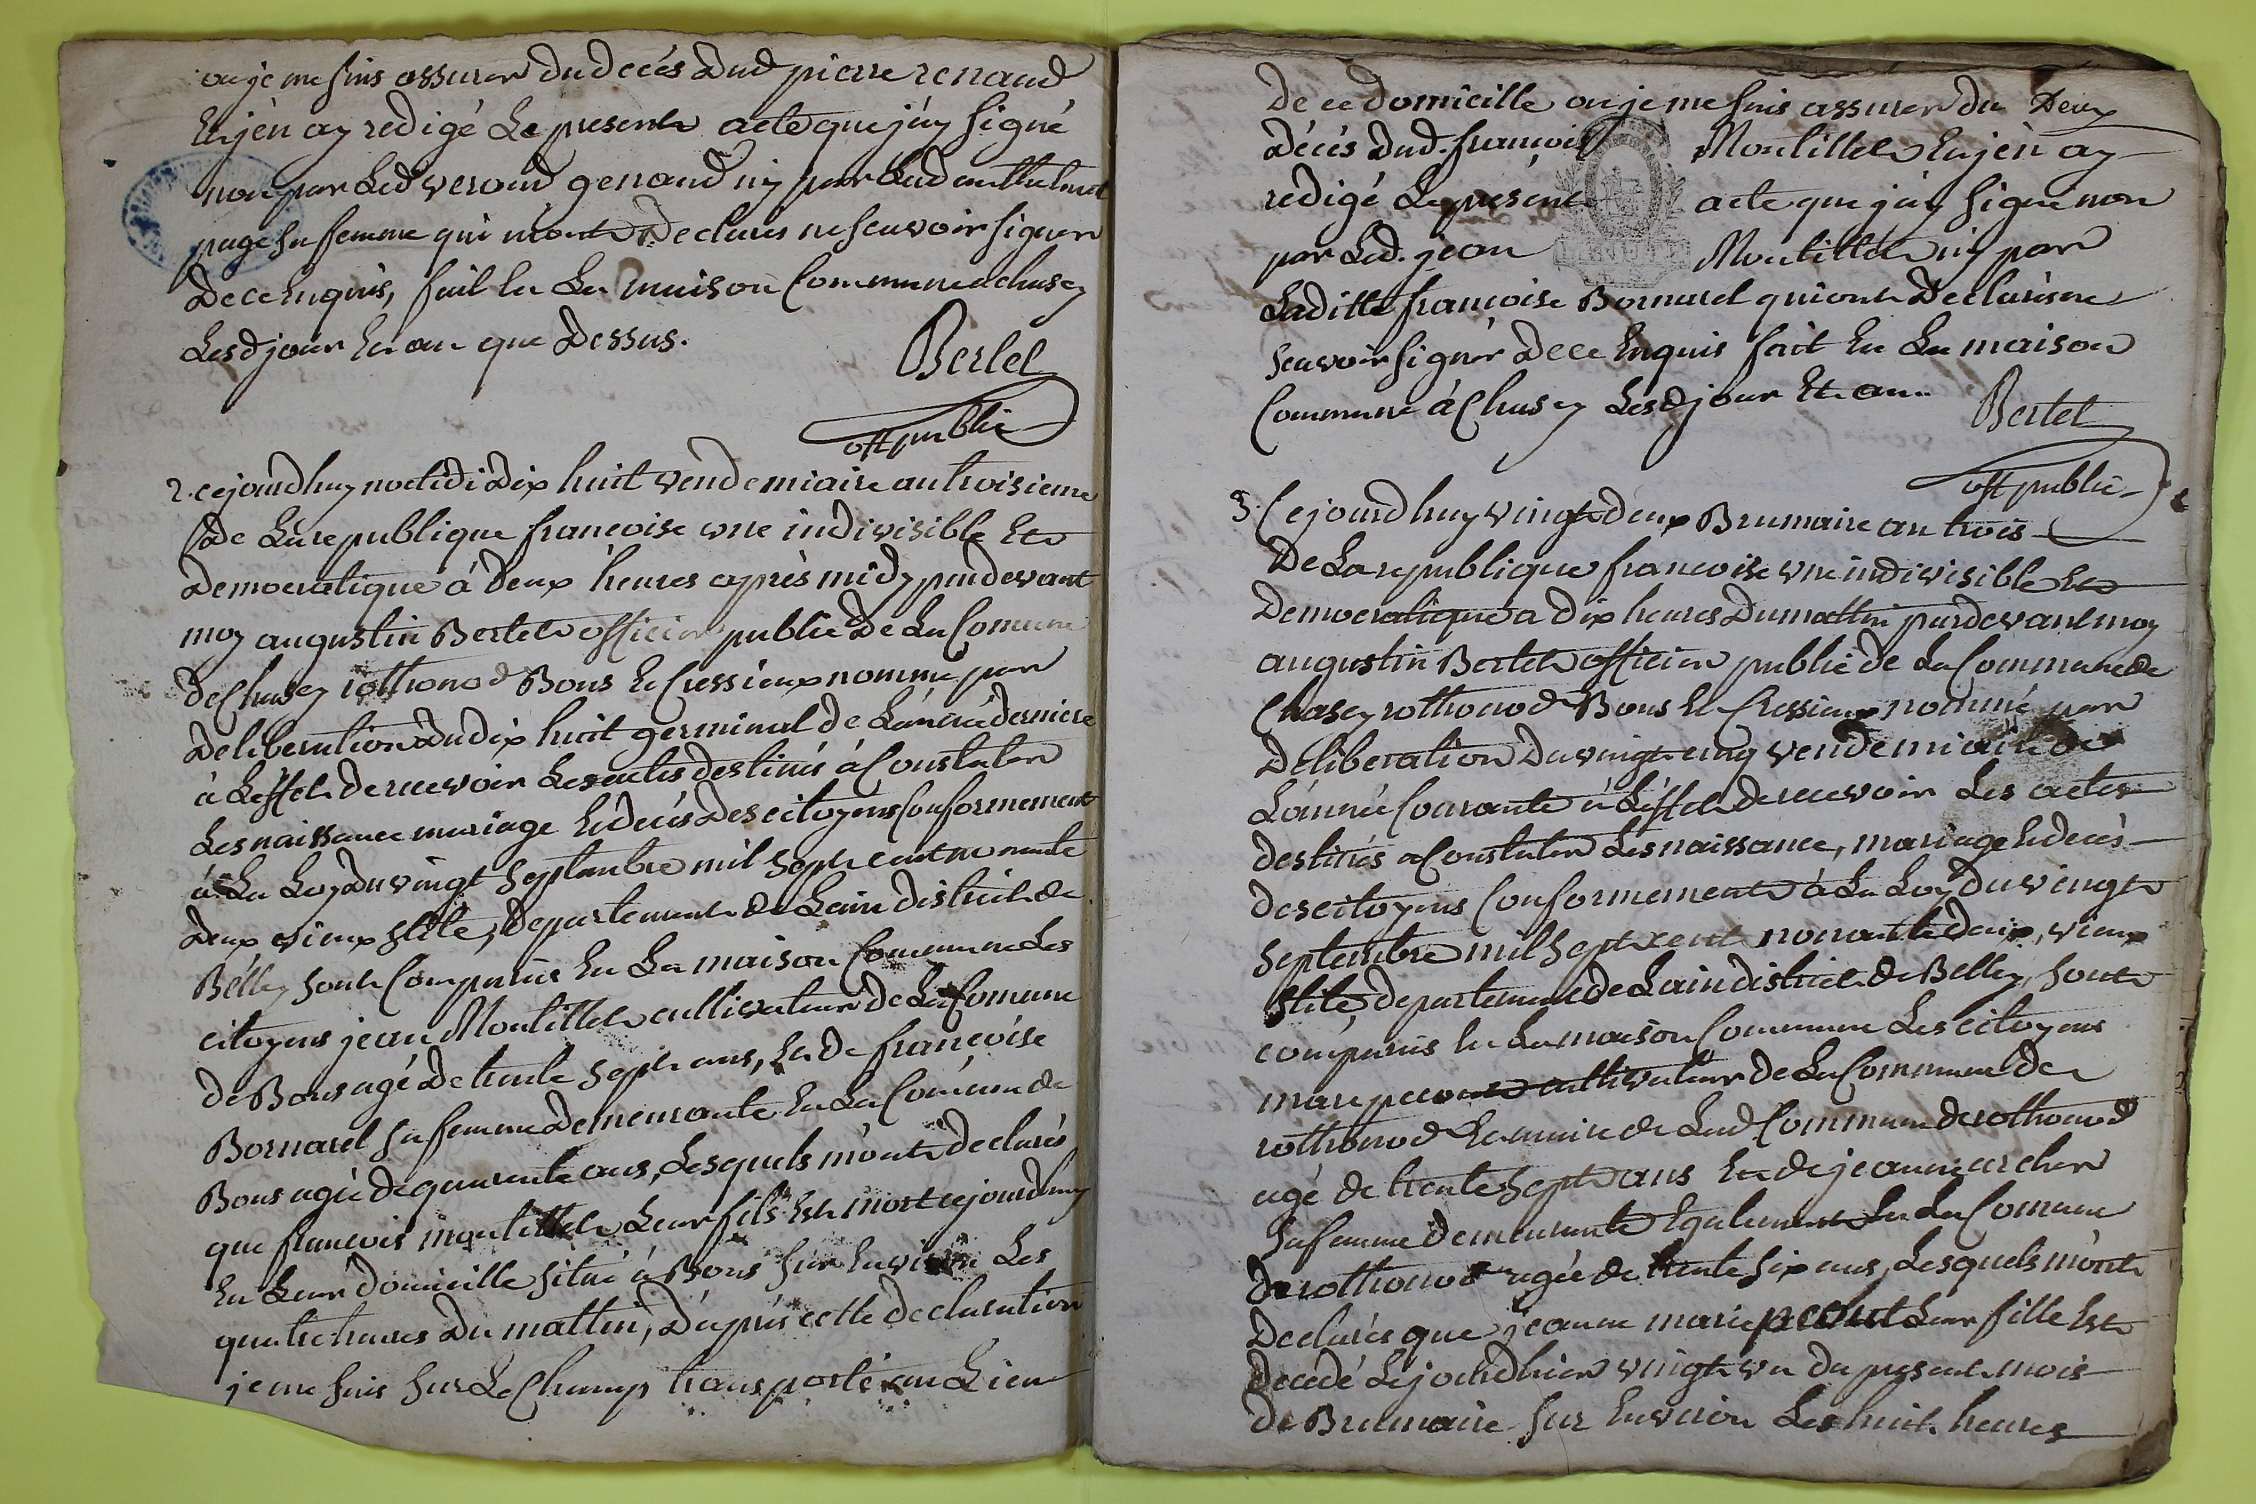 ou je me suis assurer du decés dud pierre renaud
Et jén ay redigé Le present acte que jáy signé
non par Led genaud ny par Lad
page sa femme qui mónt Declarés ne scavoir signer
De ce Enquis, fait En La maison Commune a chasey
Lesd jour Et an que Dessus.
Bertet
off public
2. cejourdhuy noctidi dix huit vendemiaire an troisieme
De La republique francoise une indivisible Et
Democratique á deux heures aprés midy pardevant
moy augustin Bertet officier public De La Comune
de Chasey rothonod Bons Et Cressieux nommé par
deliberation du dix huit germinal de Lánneé derniere
á Léffet de recevoir Les actes destinés á Constater
Les naissance mariage Et decés des citoyens Conformement
á La Loy du vingt septembre mil sept cent nonante
deux vieux stile, departement de Lain district de
Bélley sont Comparus En La maison Commune Les
citoyens jean Montillet cultivateur de La Comune
de Bons agé de trente sept ans, Et de françoise
Bornarel sa femme demeurante En La Comune de
Bons agée de quarente ans, Lesquels mónt declarés
que francois montillet Leur fils Est mort cejourdhuy
En Leur domicille situé á Bons sur Environ Les
quatre heures du mattin, dáprés cette declaration
je me suis sur Le Champ transporté au Lieu
de ce domicille ou je me suis assurer du Deux
décés dud. francois Montillet Et jén ay
redigé Le présent acte que jáy signé non
par Led. jean Montillet ny par
Laditte françoise Bornarel qui ont declarés ne
scavoir signér de ce Enquis fait En La maison
Commune á Chasey Lesd jour Et an..
Bertet
off public
3. Cejourdhuy vingt deux Brumaire an trois
de La republique francoise une indivisible Et
democratique a dix heures du mattin pardevant moy
augustin Bertet officier public de La Commune de
Chasey rothonod Bons Et Cressieux nommé par
deliberation du vingt cinq vendemiaire de
Lánnée Courante á Léffet de recevoir Les actes
destinés a Constater Les naissance, mariage Et decés
des citoyens Conformement á La Loy du vingt
septembre mil sept cent nonante deux, vieux
stile departement de Lain district de Belley, sont
comparus En La maison Commune Les citoyens
marc cultivateur de La Commune de
rothonod Et maire de Lad Commune de rothonod
agé de trente sept ans Et de jeanne archer
sa femme demeurante Egalement En La Comune
de rothonod agée de trente six ans, Lesquels mónt
declarés que jeanne marie Leur fille Est
decedé Le jourdhier vingt un du present mois
de Brumaire sur Environ Les huit heures